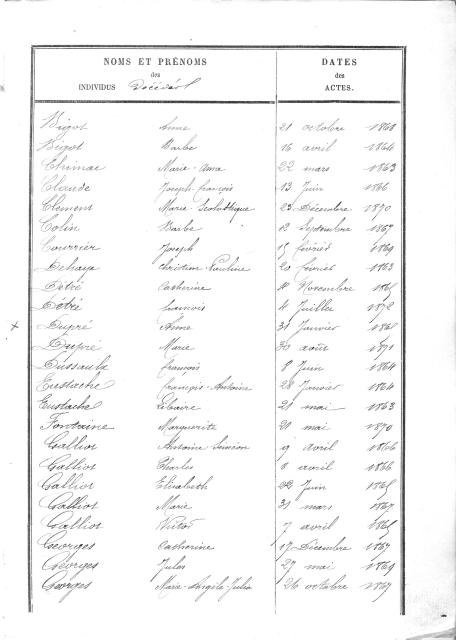 NOMS ET PRÉNOMS DATES
des des
INDIVIDUS Décédés ACTES.
Bigot Anne 21 octobre
Bigot Barbe 16 avril 1864
Chimac Marie-Anna 22 mars 1863
Claude Joseph françois 13 Juin 1866
Clément Marie-Scholastique 23 Décembre 1870
Colin Barbe 12 Septembre 1867
Courrier Joseph 15 février 1869
Dehaye Christine Pauline 20 février 1863
Détré Catherine Novembre 1865
Détré francois 4 Juillet 1872
x Dupré Anne 31 Janvier 1865
Dupré Marie 30 août 1871
Dussaulx francois 8 Juin 1864
Eustache françois-Antoine 28 Janvier 1864
Eustache Libaire 21 mai 1863
Fontaine Marguerite 21 mai 1870
Galliot Antoine Siméon 9 avril 1866
Galliot Charles 8 avril 1866
Galliot Elisabeth 22 Juin 1865
Galliot Marie 31 mars 1867
Galliot Victor 7 avril 1865
Georges Catherine 17 Décembre 1867
Georges Jules 27 mai 1869
Georges Marie-Angèle-Julie 26 octobre 1867